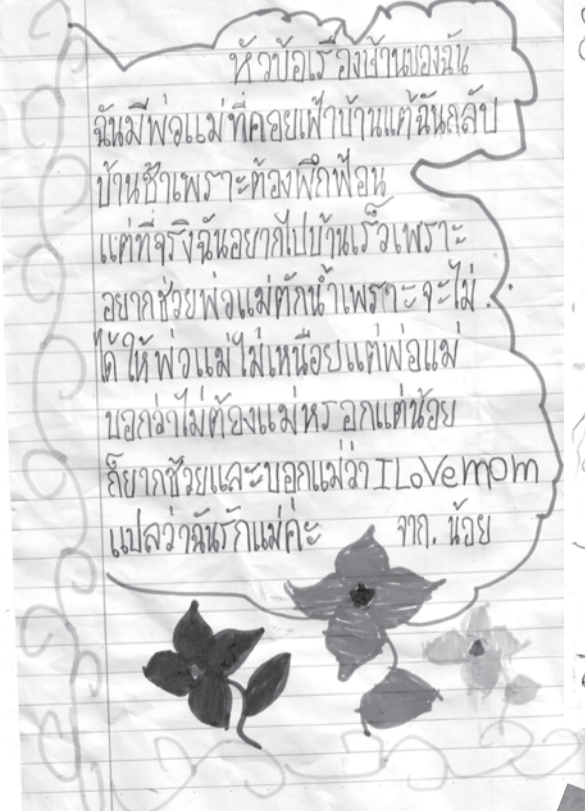 หัวข้อเรื่องบ้านของฉัน
ฉันมีพ่อแม่ที่คอยเฝ้าบ้านแต่ฉันกลับ
บ้านช้าเพราะต้องฝึกฟ้อน
แต่ที่จริงฉันอยากไปบ้านเร็วเพราะ
อยากช่วยพ่อแม่ตักน้ำเพราะจะไม่
ได้ให้พ่อแม่ไม่เหนื่อยแต่พ่อแม่
บอกว่าไม่ต้องแม่หรอกแต่น้อย
ก็ยากช้วยและบอกแม่ว่า I LoVe mom
แปลว่าฉันรักแม่ค่ะ จาก. น้อย